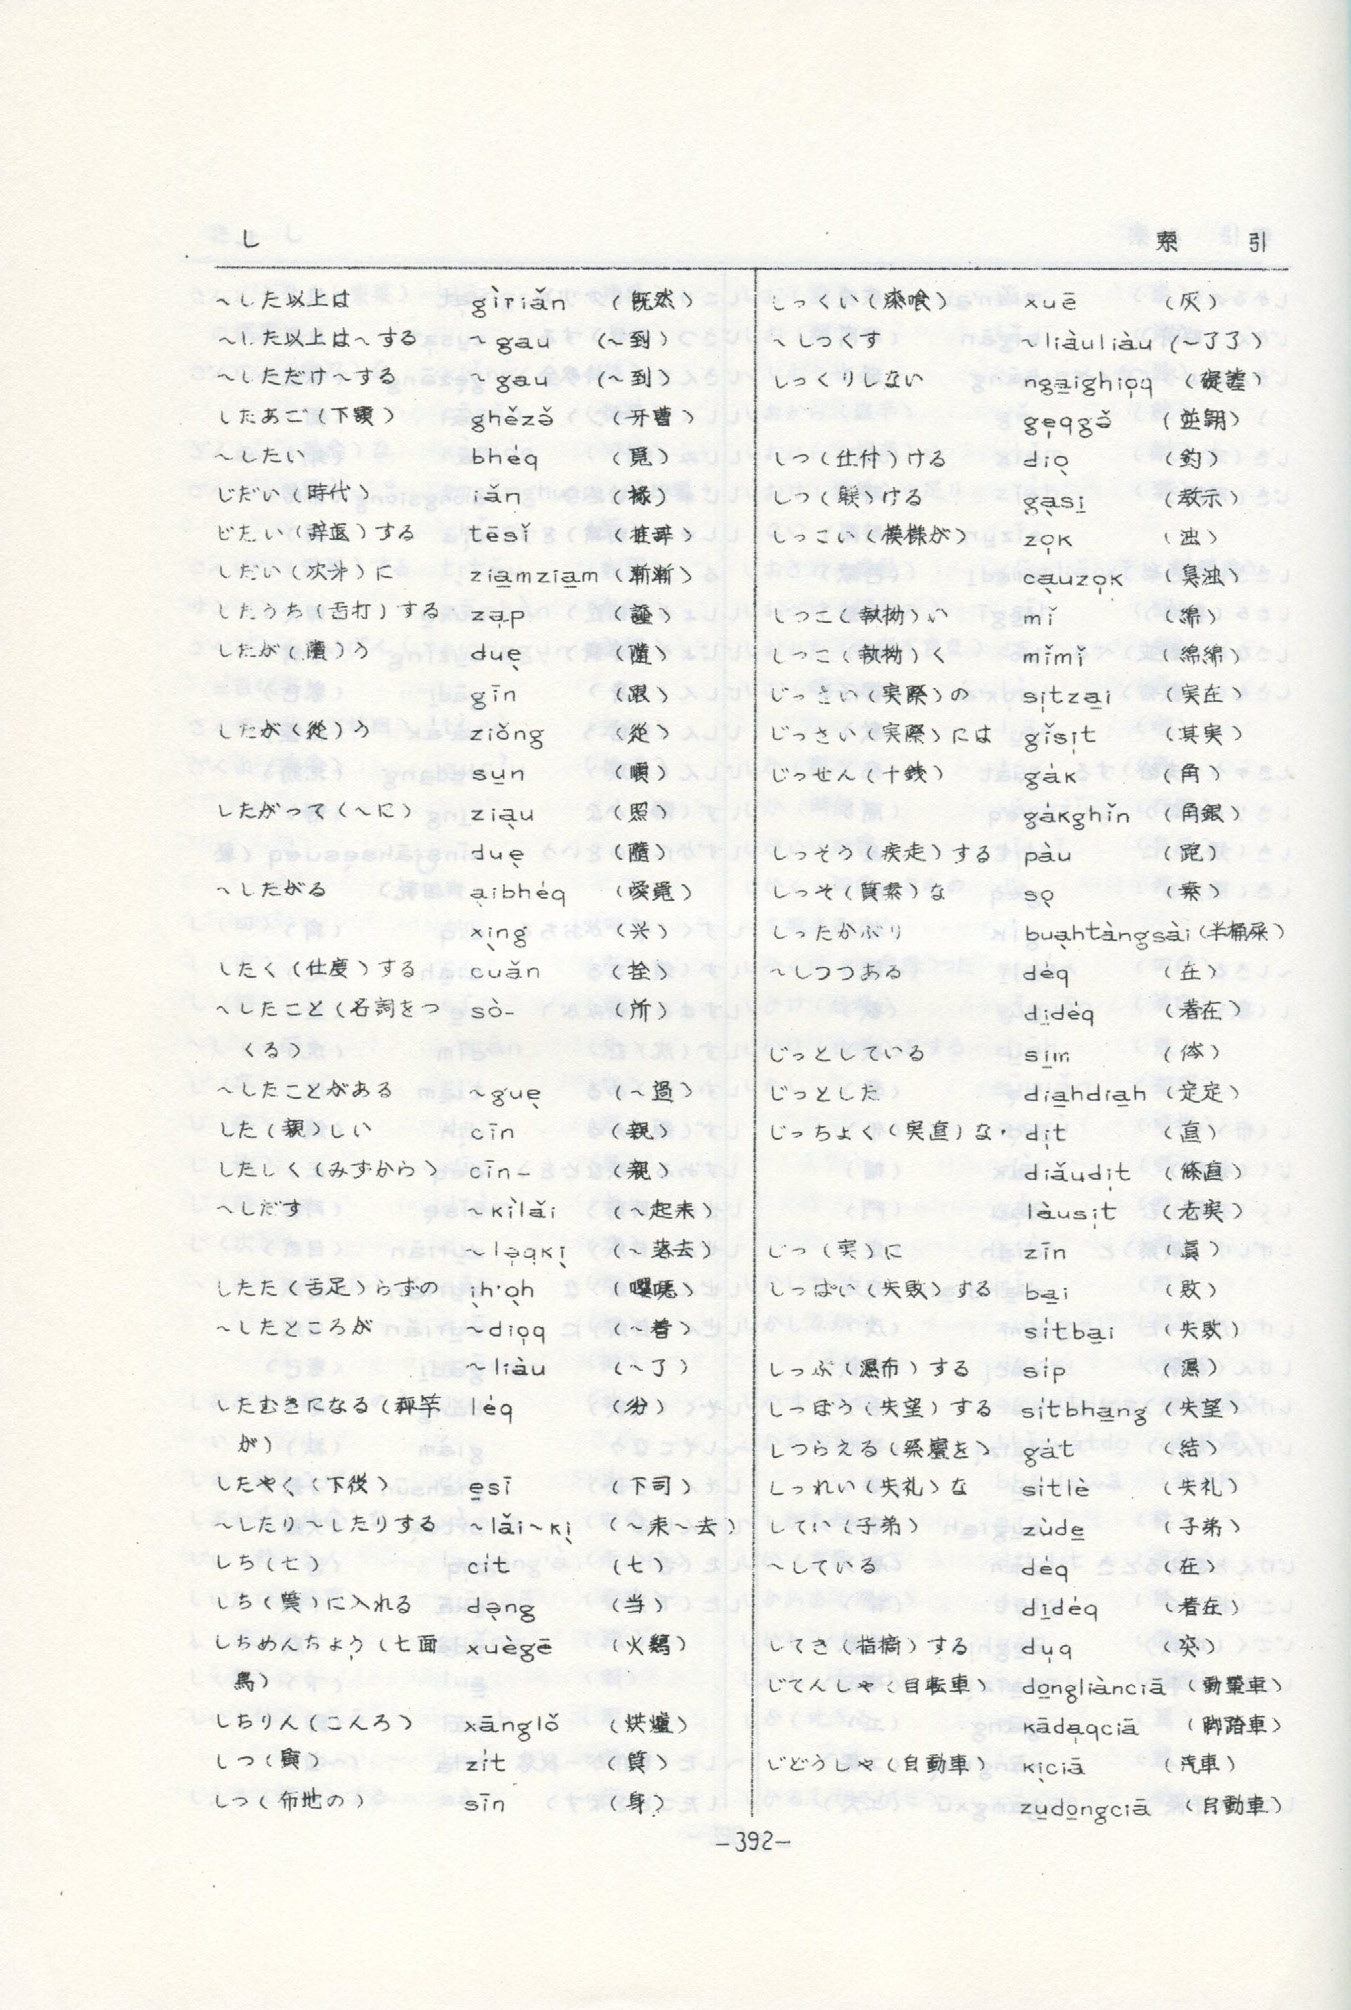 し
索 引
～した以上は gìriǎn (既然)
～した以上は～する ～gau (～到)
～しただけ～する ～gau (～到)
したあご(下顎) ghězə̌ (牙曹)
～したい bhe̍q (覓)
じだい(時代) iǎn (椽)
じたい(辞退)する tēsǐ (推辞)
しだい(次第)に zia̱mzia̱m (漸漸)
したうち(舌打)する
したが(隨)う due̖ (隨)
gīn (跟)
したが(従)う ziǒng (従)
su̱n (順)
したがって(～に) zia̖u (照)
due̖ (隨)
～したがる a̖ibhe̍q (愛覓)
xi̖ng (兴)
したく(仕度)する cuǎn (拴)
～したこと(名詞をつ sò- (所)
くる)
～したことがある ～gue̖ (～過)
した(親)しい cīn (親)
したしく(みずから) cīn- (親)
～しだす ～kìlǎi (～起来)
～lə̣qki̖ (～落去)
したた(舌足)らずの
～したところが ～diọq (～着)
～liàu (～了)
したむきになる(秤竿 le̍q
が)
したやく(下役) e̱sī (下司)
～したり～したりする ～lǎi～ki̖ (～来～去)
しち(七) ci̍t (七)
しち(質)に入れる də̖ng (当)
しちめんちょう(七面 xuègē (火鶏)
鳥)
しちりん(こんろ) xānglǒ (烘爐)
しつ(質) zi̍t (質)
しつ(布地の) sīn (身)
しっくい(漆喰) xuē (灰)
～しつくす ～liàuliàu (～了了)
しっくりしない nga̱ighiọq
gẹqgə̌ (並翺)
しつ(仕付)ける dio̖ (釣)
しつ(躾)ける ga̖si̱ (教示)
しつこい(模様が) zọk (浊)
ca̖uzọk (臭浊)
しつこ(執拗)い mǐ (綿)
しつこ(執拗)く mǐmǐ (綿綿)
じっさい(実際)の sịtza̱i (実在)
じっさい(実際)には gǐsịt (其実)
じっせん(十銭) ga̍k (角)
ga̍kghǐn (角銀)
しっそう(疾走)する pàu (跑)
しっそ(質素)な so̖ (素)
しったかぶり bua̖htàngsài (半桶屎)
～しつつある de̍q (在)
di̱de̍q (着在)
じっとしている
じっとした dia̱hdia̱h (定定)
じっちょく(実直)な dịt (直)
diǎudịt (條直)
làusịt (老実)
じつ(実)に zīn (眞)
しっぱい(失敗)する ba̱i (敗)
si̍tba̱i (失敗)
しっぷ(濕布)する si̍p (濕)
しつぼう(失望)する si̍tbha̱ng (失望)
しつらえる(祭壇を) ga̍t (結)
しつれい(失礼)な si̍tlè (失礼)
してい(子弟) zùde̱ (子弟)
～している de̍q (在)
di̱de̍q (着在)
してき(指摘)する dụq
じてんしゃ(自転車) do̱ngliànciā (動輦車)
kādạqciā (脚踏車)
じどうしゃ(自動車) ki̖ciā (汽車)
zu̱do̱ngciā (自動車)
-392-